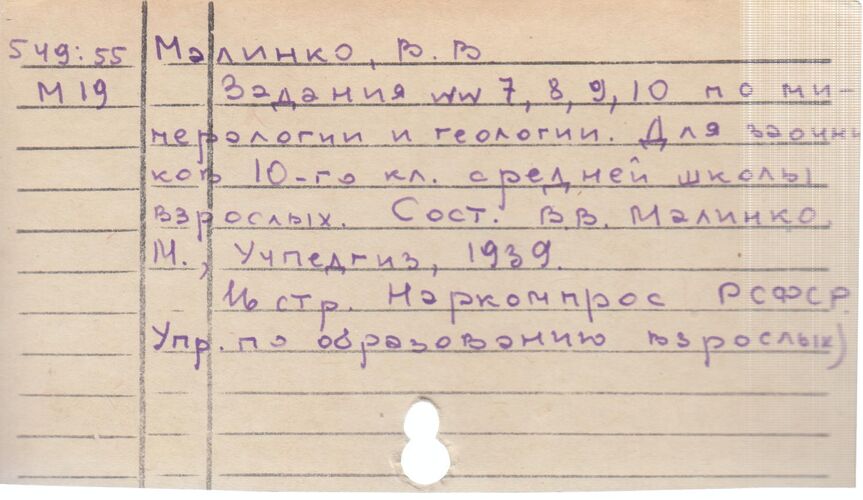 549:55 Малинко, В.В.
М19 Задания №№ 7, 8, 9, 10 по ми-
нералогии и геологии. Для заочни
ков 10-го кл. средней школы
взрослых. Сост. В.В. Малинко.
М., Учпедгиз, 1939.
16 стр. Наркомпрос РСФСР.
Упр. по образованию взрослых)